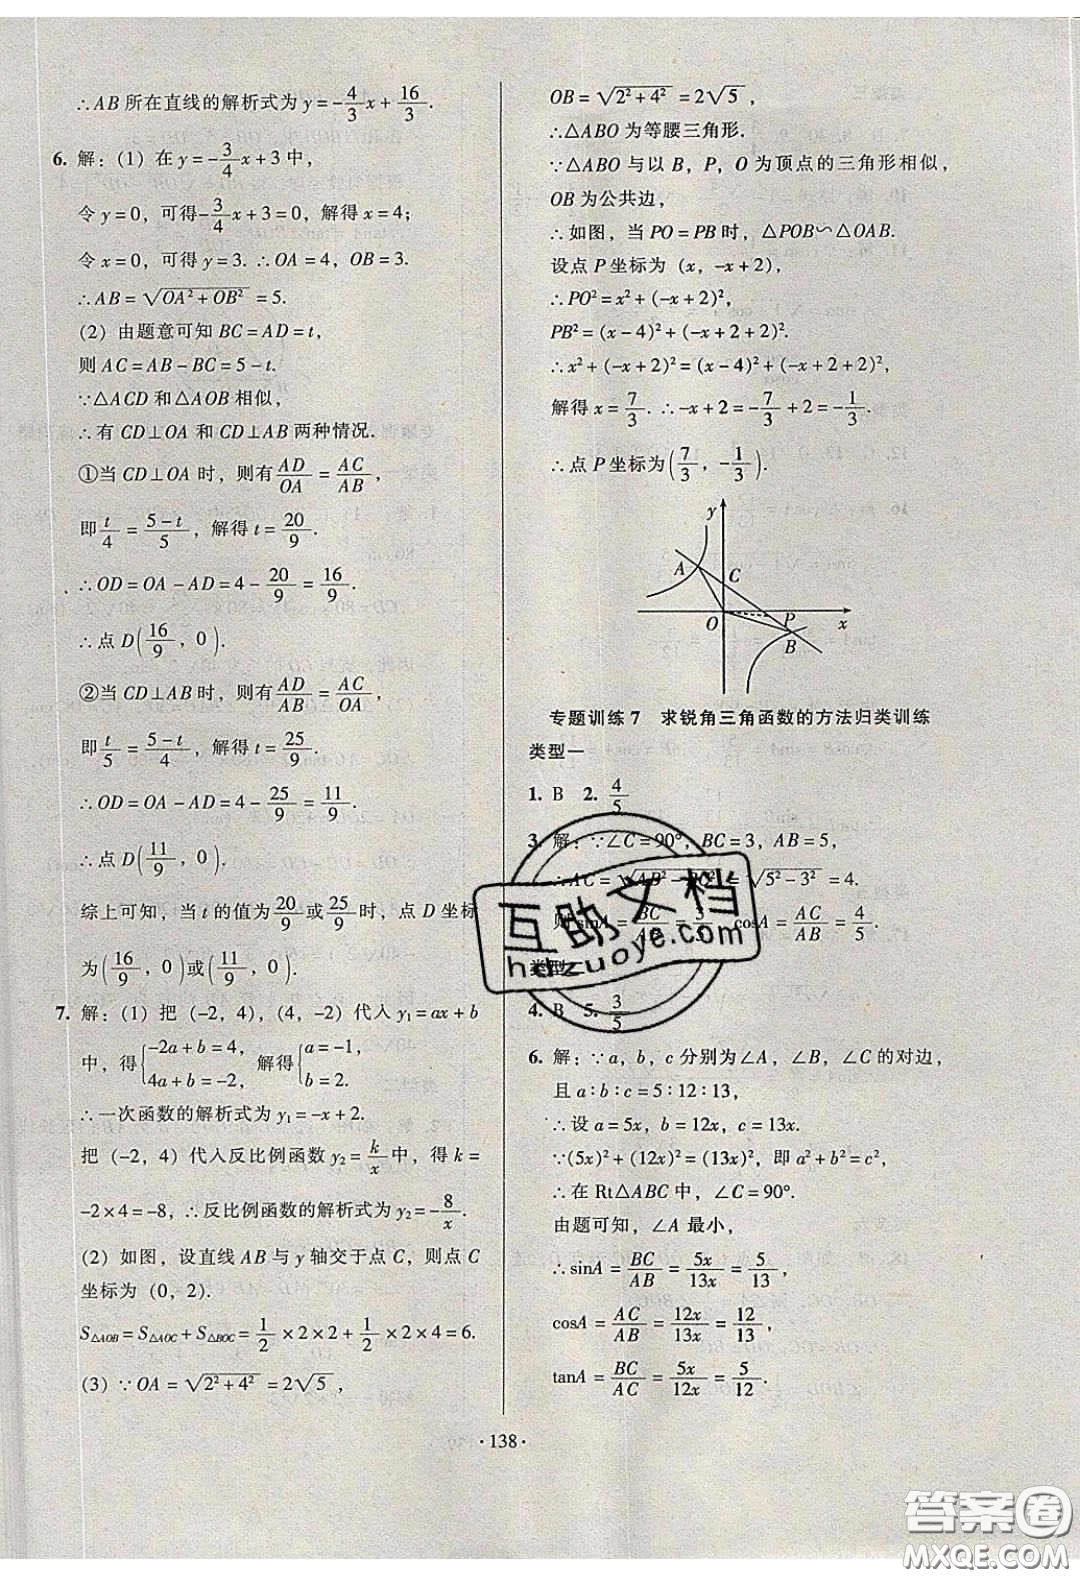 ∴AB所在直线的解析式为y=-4/3x+16/3.
6. 解：(1) 在y=-3/4x+3中，
令y=0，可得-3/4x+3=0，解得x=4；
令x=0，可得y=3. ∴OA=4，OB=3.
∴AB=√(OA²+OB²)=5.
(2) 由题意可知BC=AD=t，
则AC=AB-BC=5-t.
∵△ACD和△AOB相似，
∴有CD⊥OA和CD⊥AB两种情况.
①当CD⊥OA时，则有AD/OA=AC/AB，
即t/4=(5-t)/5，解得t=20/9.
∴OD=OA-AD=4-20/9=16/9.
∴点D(16/9，0).
②当CD⊥AB时，则有AD/AB=AC/OA，
即t/5=(5-t)/4，解得t=25/9.
∴OD=OA-AD=4-25/9=11/9.
∴点D(11/9，0).
综上可知，当t的值为20/9或25/9时，点D坐标
为(16/9，0)或(11/9，0).
7. 解：(1) 把 (-2，4)，(4，-2) 代入y₁=ax+b
中，得{-2a+b=4，4a+b=-2， 解得{a=-1，b=2.
∴一次函数的解析式为y₁=-x+2.
把 (-2，4) 代入反比例函数y₂=k/x中，得k=
-2×4=-8，∴反比例函数的解析式为y₂=-8/x.
(2) 如图，设直线AB与y轴交于点C，则点C
坐标为 (0，2).
S△AOB=S△AOC+S△BOC=1/2×2×2+1/2×2×4=6.
(3) ∵OA=√(2²+4²)=2√5，
OB=√(2²+4²)=2√5，
∴△ABO为等腰三角形.
∵△ABO与以B，P，O为顶点的三角形相似，
OB为公共边，
∴如图，当PO=PB时，△POB∽△OAB.
设点P坐标为 (x，-x+2)，
∴PO²=x²+(-x+2)²，
PB²=(x-4)²+(-x+2+2)².
∴x²+(-x+2)²=(x-4)²+(-x+2+2)²，
解得x=7/3. ∴-x+2=-7/3+2=-1/3.
∴点P坐标为(7/3，-1/3).
y
A
C
O
P
B
x
专题训练7 求锐角三角函数的方法归类训练
类型一
1. B 2. 4/5
3. 解：∵∠C=90°，BC=3，AB=5，
∴AC=√(AB²-BC²)=√(5²-3²)=4.
则sinA=BC/AB=3/5，cosA=AC/AB=4/5.
类型二
4. B 5. 3/5
6. 解：∵a，b，c分别为∠A，∠B，∠C的对边，
且a∶b∶c=5∶12∶13，
∴设a=5x，b=12x，c=13x.
∵(5x)²+(12x)²=(13x)²，即a²+b²=c²，
∴在Rt△ABC中，∠C=90°.
由题可知，∠A最小，
∴sinA=BC/AB=5x/13x=5/13，
cosA=AC/AB=12x/13x=12/13，
tanA=BC/AC=5x/12x=5/12.
·138·
互助文档
hdzuoye.com
答案圈
MXQE.COM